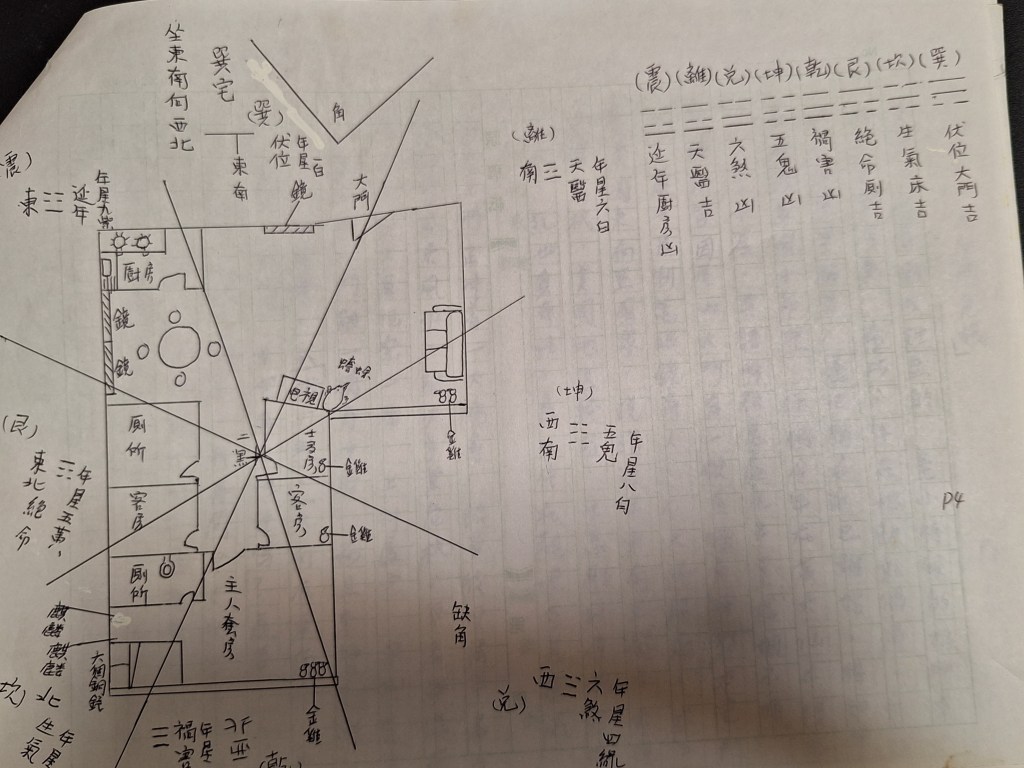 (震)(離)(兌)(坤)(乾)(艮)(坎)(巽)
伏位大門吉
生氣床吉
絕命厠吉
禍害凶
五鬼凶
六煞凶
天醫吉
延年廚房凶
坐東南向西北
巽宅
(巽)
伏位
年星一白
鏡
東南
角
大門
(離)
南
天醫
年星六白
(震)
東
延年
廚房
鏡
鏡
電視
二黑
金雞
厠所
客房
客房
金雞
金雞
(坤)
西南
五鬼
年星八白
P4
(艮)
東北絕命
年星五黃
厠所
主人套房
缺角
(兌)
西
六煞
年星四綠
金雞
(坎)
北
生氣
年星
西北
禍害
年星
(乾)